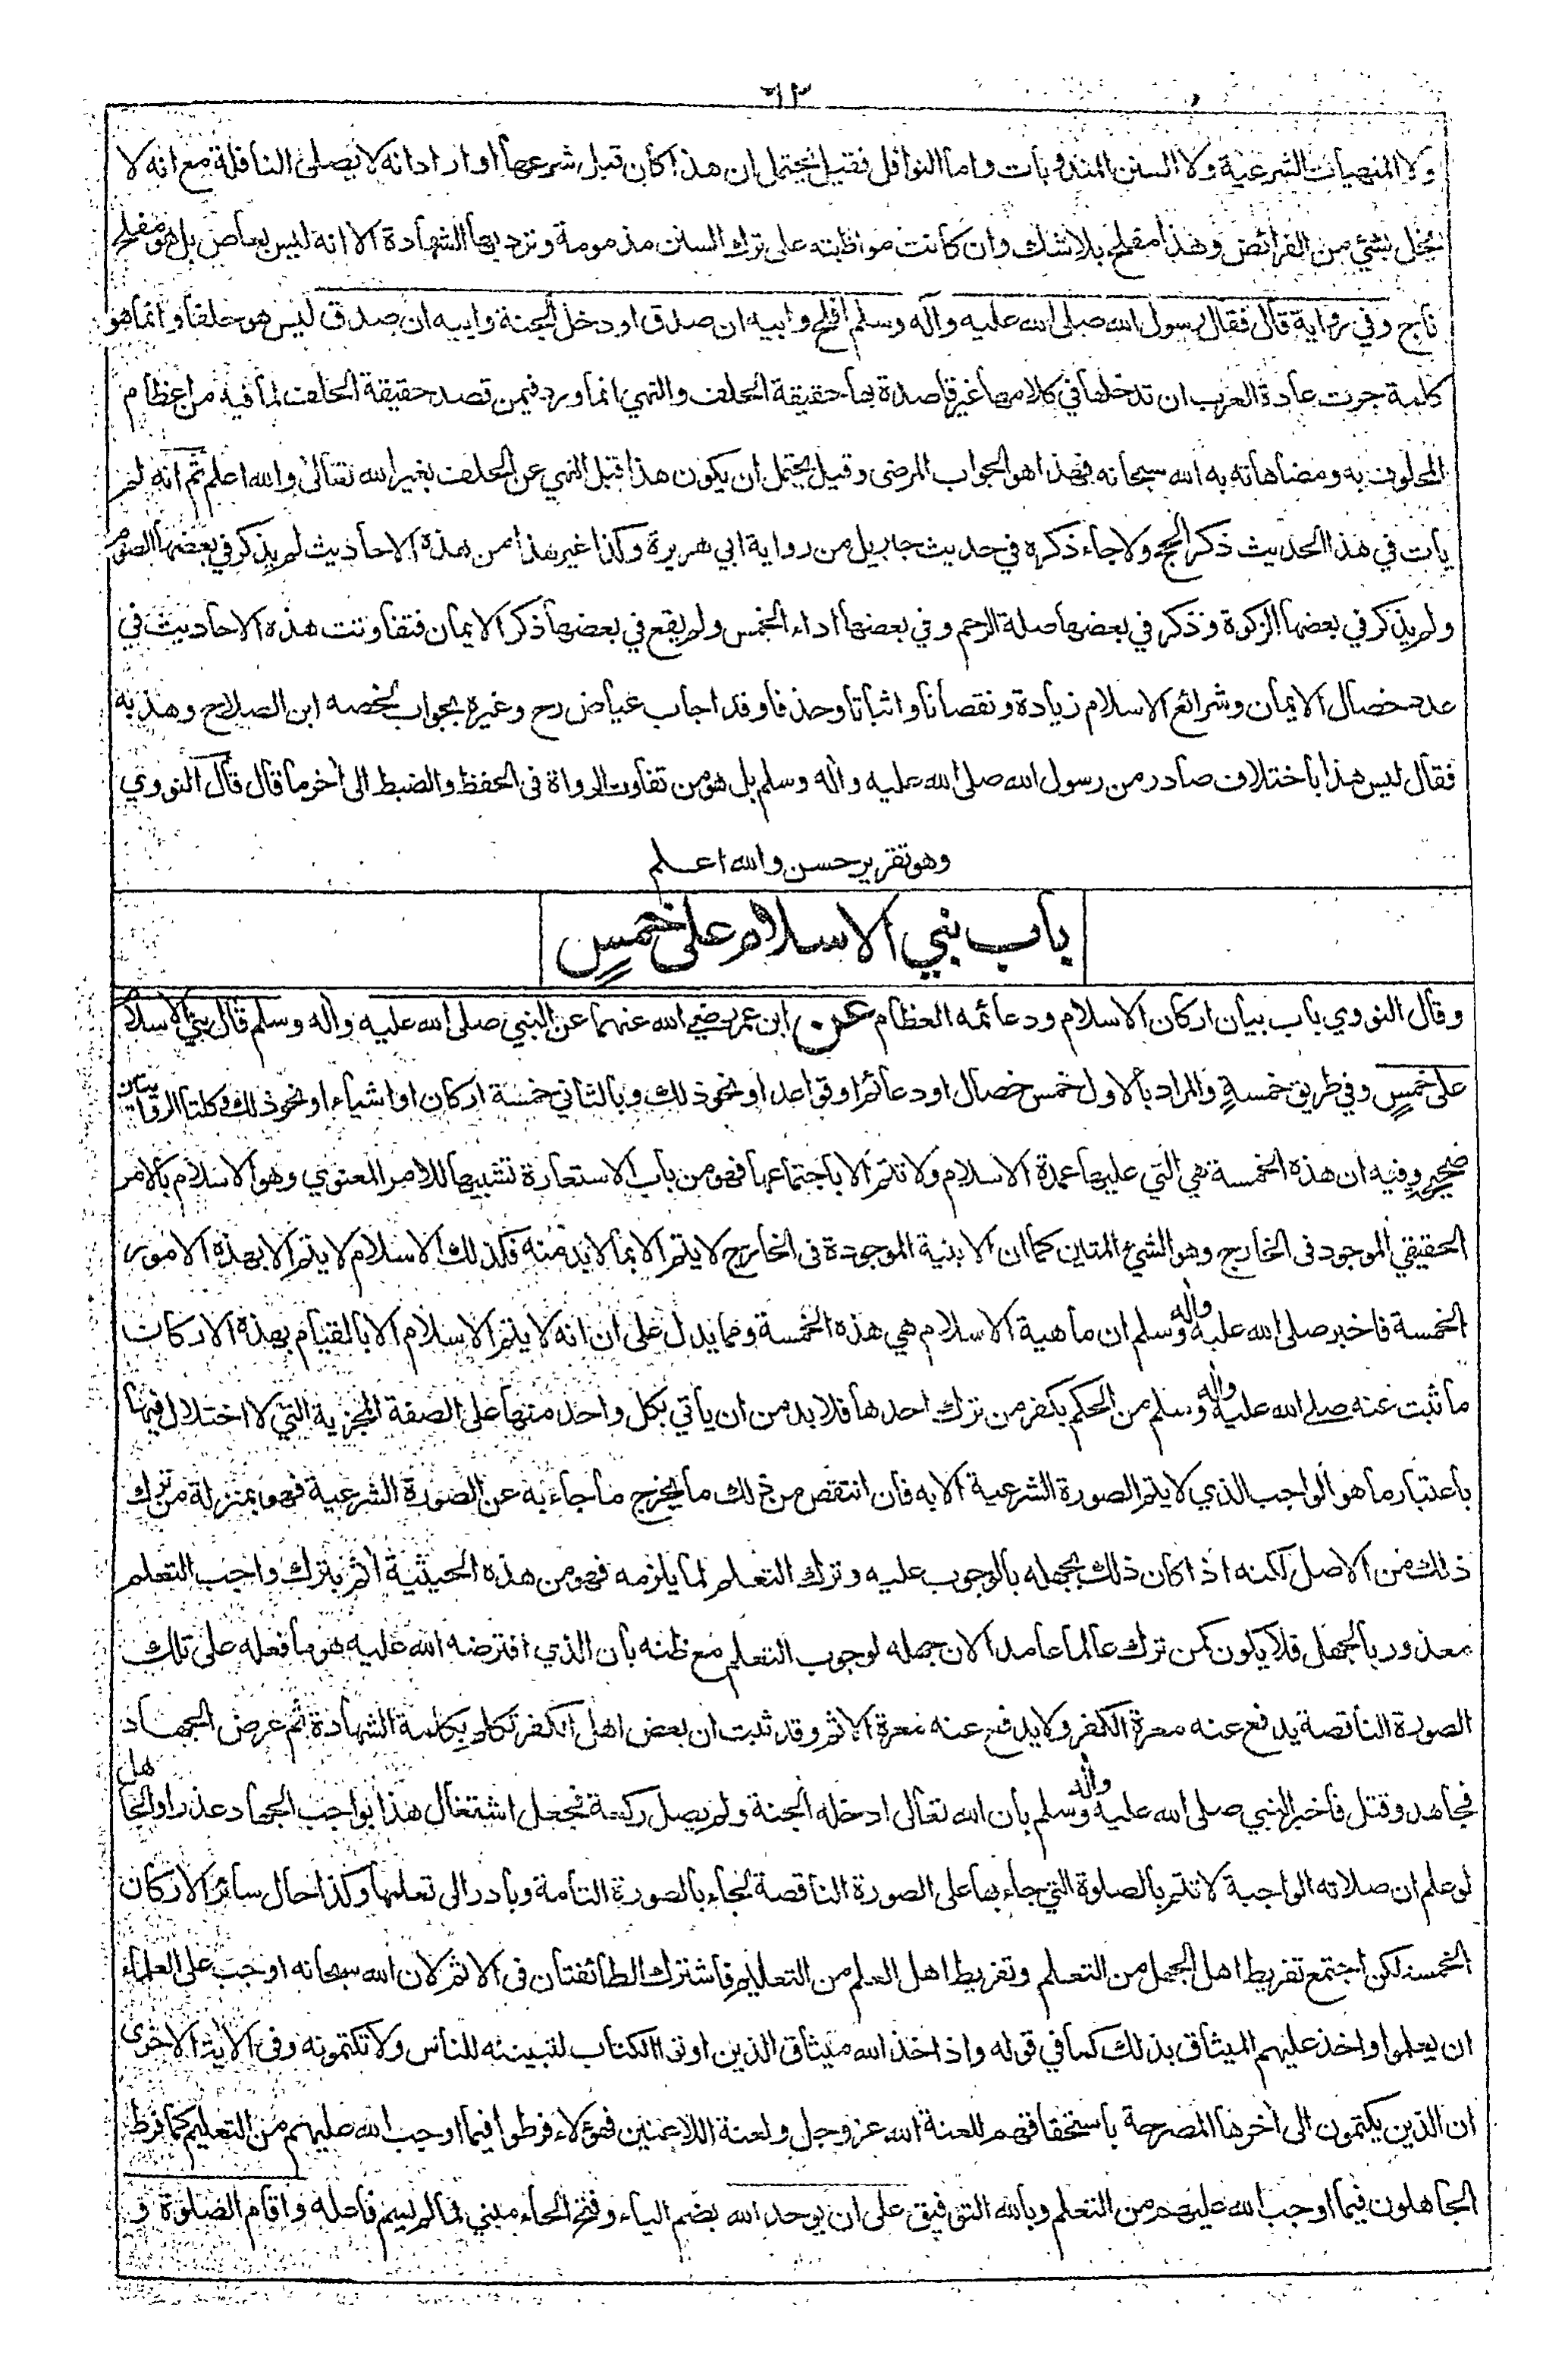 ٦٢
ولا المنهيات الشرعية ولا السنن المندوبات واما النوافل فقيل يحتمل ان هذا كان قبل شرعها او اراد انه لا يصلى النافلة مع انه لا
يخل بشئ من الفرائض وهذا مفلح بلا شك وان كانت مواظبته على ترك السنن مذمومة وترد بها الشهادة الا انه ليس بعاص بل هو مفلح
ناج وفي رواية قال فقال رسول الله صلى الله عليه واله وسلم افلح وابيه ان صدق او دخل الجنة وابيه ان صدق ليس هو حلفا وانما هو
كلمة جرت عادة العرب ان تدخلها في كلامها غير قاصدة بها حقيقة الحلف والنهي انما ورد فيمن قصد حقيقة الحلف لما فيه من اعظام
المحلوف به ومضاهاته به الله سبحانه فهذا هو الجواب المرضى وقيل يحتمل ان يكون هذا قبل النهي عن الحلف بغير الله تعالى والله اعلم ثم انه لم
يات في هذا الحديث ذكر الحج ولا جاء ذكره في حديث جابريل من رواية ابي هريرة وكذا غير هذا من هذه الاحاديث لم يذكر في بعضها الصوم
ولم يذكر في بعضها الزكوة وذكر في بعضها صلة الرحم وفي بعضها اداء الخمس ولم يقع في بعضها ذكر الايمان فتفاوتت هذه الاحاديث في
عدد خصال الايمان وشرائع الاسلام زيادة ونقصانا واثباتا وحذفا وقد اجاب عياض رح وغيره بجواب لخصه ابن الصلاح وهذبه
فقال ليس هذا باختلاف صادر من رسول الله صلى الله عليه واله وسلم بل هو من تفاوت الرواة فى الحفظ والضبط الى اخر ما قال قال النووي
وهو تقرير حسن والله اعلم
باب بني الاسلام على خمسٍ
وقال النووي باب بيان اركان الاسلام ودعائمه العظام عن ابن عمر رضي الله عنهما عن النبي صلى الله عليه واله وسلم قال بني الاسلام
على خمسٍ وفي طريق خمسةٍ والمراد بالاول خمس خصال او دعائم او قواعد او نحو ذلك وبالثاني خمسة اركان او اشياء او نحو ذلك وكلتا الروايتان
صحيح وفيه ان هذه الخمسة هي التي عليها عمدة الاسلام ولا تتم الا باجتماعها فهو من باب الاستعارة تشبيها للامر المعنوي وهو الاسلام بالامر
الحقيقي الموجود فى الخارج وهو الشيء المتين كما ان الابنية الموجودة فى الخارج لا يتم الا بما لا بد منه فكذلك الاسلام لا يتم الا بهذه الامور
الخمسة فاخبر صلى الله عليه واله وسلم ان ماهية الاسلام هي هذه الخمسة ومما يدل على ان انه لا يتم الاسلام الا بالقيام بهذه الاركان
ما ثبت عنه صلى الله عليه واله وسلم من الحكم بكفر من ترك احدها فلا بد من ان ياتي بكل واحد منها على الصفة المجزية التي لا اختلال فيها
باعتبار ما هو الواجب الذي لا يتم الصورة الشرعية الا به فان انتقص من ذلك ما يخرج ما جاء به عن الصورة الشرعية فهو بمنزلة من ترك
ذلك من الاصل لكنه اذا كان ذلك بجهله بالوجوب عليه وترك التعلم لما يلزمه فهو من هذه الحيثية اثم بترك واجب التعلم
معذور بالجهل فلا يكون كمن ترك عالما عامدا لان جهله لوجوب التعلم مع ظنه بان الذي افترضه الله عليه هو ما فعله على تلك
الصورة الناقصة يدفع عنه معرة الكفر ولا يدفع عنه معرة الاثم وقد ثبت ان بعض اهل الكفر تكلم بكلمة الشهادة ثم عرض الجهاد
فجاهد وقتل فاخبر النبي صلى الله عليه واله وسلم بان الله تعالى ادخله الجنة ولم يصل ركعة فجعل اشتغال هذا بواجب الجهاد عذرا والجاهل
لو علم ان صلاته الواجبة لا تتم بالصلوة التي جاء بها على الصورة الناقصة لجاء بالصورة التامة وبادر الى تعلمها وكذا حال سائر الاركان
الخمسة لكن اجتمع تفريط اهل الجهل من التعلم وتفريط اهل العلم من التعليم فاشترك الطائفتان فى الاثم لان الله سبحانه اوجب على العلماء
ان يعلموا واخذ عليهم الميثاق بذلك كما في قوله واذ اخذ الله ميثاق الذين اوتوا الكتاب لتبيننه للناس ولا تكتمونه وفى الاية الاخرى
ان الذين يكتمون الى اخرها المصرحة باستحقاقهم للعنة الله عز وجل ولعنة اللاعنين فهؤلاء فرطوا فيما اوجب الله عليهم من التعليم كما فرط
الجاهلون فيما اوجب الله عليهم من التعلم وبالله التوفيق على ان يوحد الله بضم الياء وفتح الحاء مبني لما لم يسم فاعله واقام الصلوة و